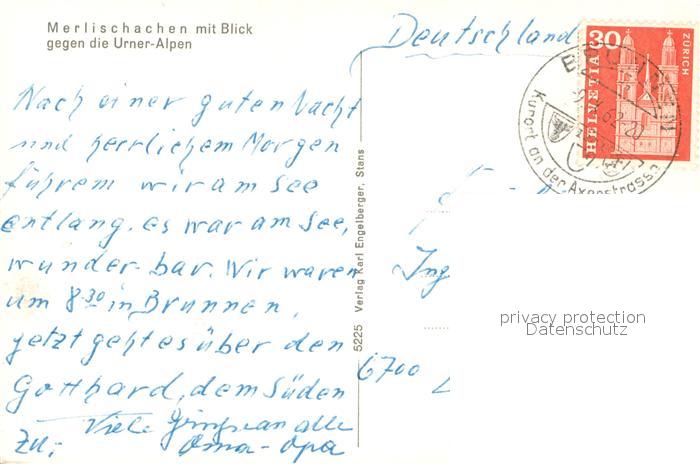 Merlischachen mit Blick
gegen die Urner-Alpen
Nach einer guten Nacht
und herrlichem Morgen
führem wir am See
entlang, es war am See,
wunder-bar. Wir waren
um 8.30 in Brunnen,
jetzt geht es über den
Gotthard, dem Süden
zu;
Viele
an alle
Oma-Opa
5225 Verlag Karl Engelberger, Stans
Deutschland
30
HELVETIA
ZÜRICH
Kurort an der Axenstrasse
Ing
6700 L
privacy protection
Datenschutz